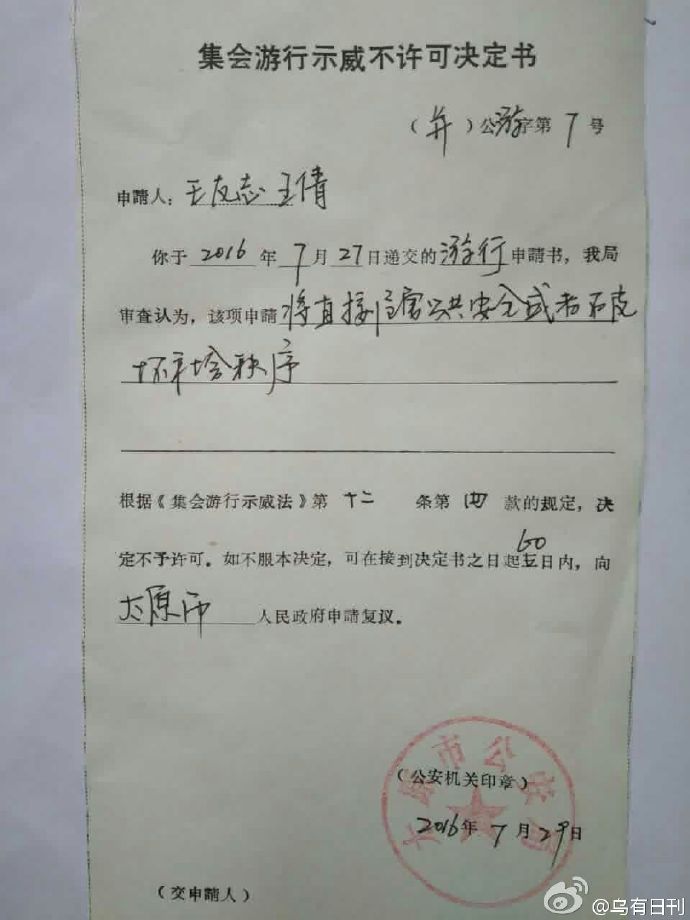 集会游行示威不许可决定书
（并）公游字第 7 号
申請人：王友志 王倩
你于 2016 年 7 月 27 日递交的 游行 申請书，我局
审查认为，该项申請 将直接危害公共安全或者严重破
坏社会秩序
根据《集会游行示威法》第 十二 条第 四 款的规定，决
60
定不予许可。如不服本决定，可在接到决定书之日起三日内，向
太原市 人民政府申請复议。
太原市公安局
（公安机关印章）
2016年 7 月 29 日
（交申請人）
@乌有日刊